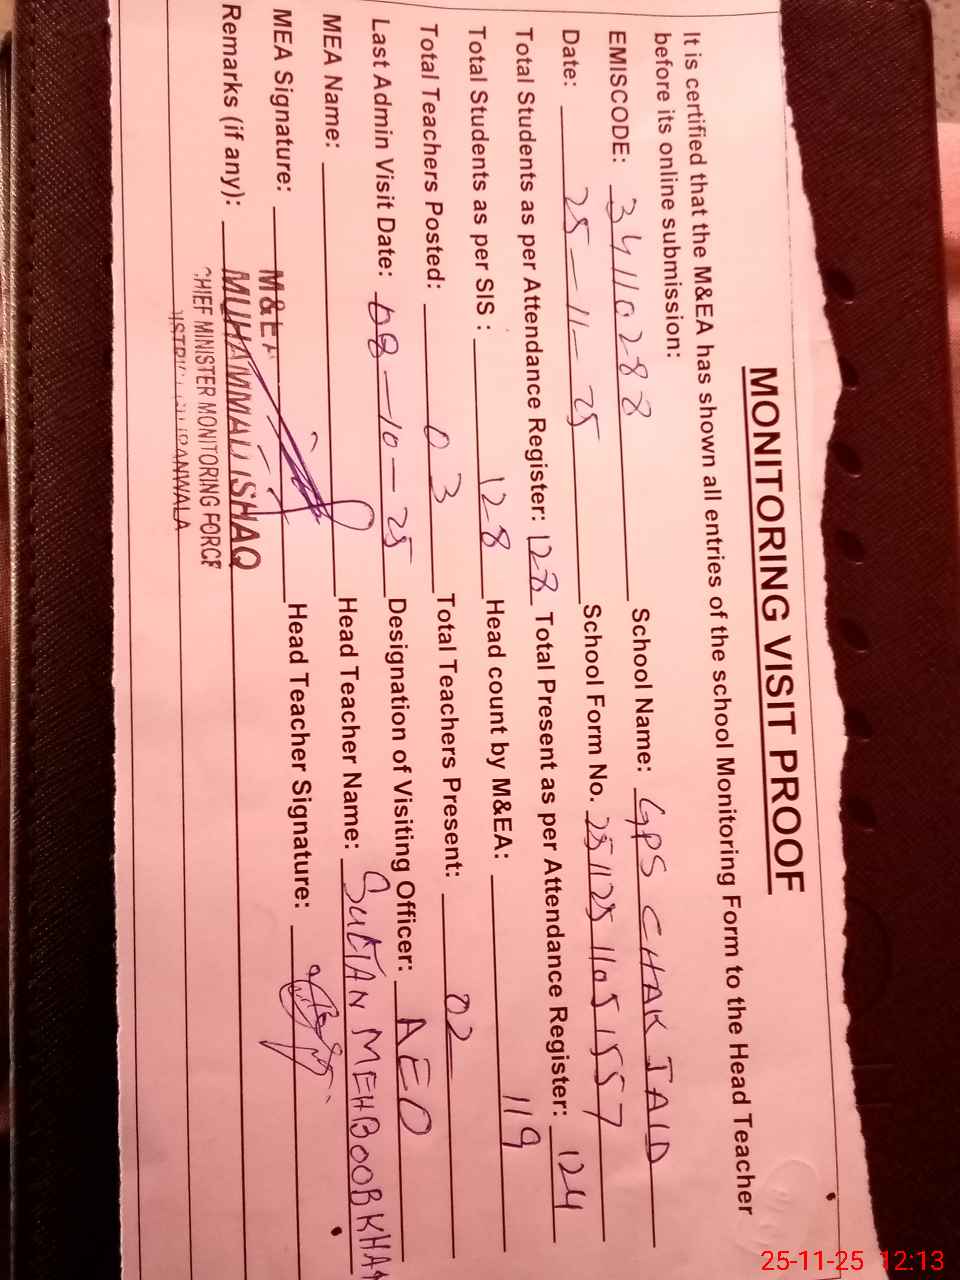 MONITORING VISIT PROOF
It is certified that the M&EA has shown all entries of the school Monitoring Form to the Head Teacher
before its online submission:
EMISCODE: 34110288 School Name: GPS CHAK JAID
Date: 25-11-25 School Form No. 2511251105157
Total Students as per Attendance Register: 128 Total Present as per Attendance Register: 124
Total Students as per SIS : 128 Head count by M&EA: 119
Total Teachers Posted: 03 Total Teachers Present: 02
Last Admin Visit Date: 08-10-25 Designation of Visiting Officer: AEO
MEA Name: Head Teacher Name: SULTAN MEHBOOB KHAN
MEA Signature: Head Teacher Signature:
Remarks (if any):
M&EA
MUHAMMAD ISHAQ
CHIEF MINISTER MONITORING FORCE
25-11-25 12:13